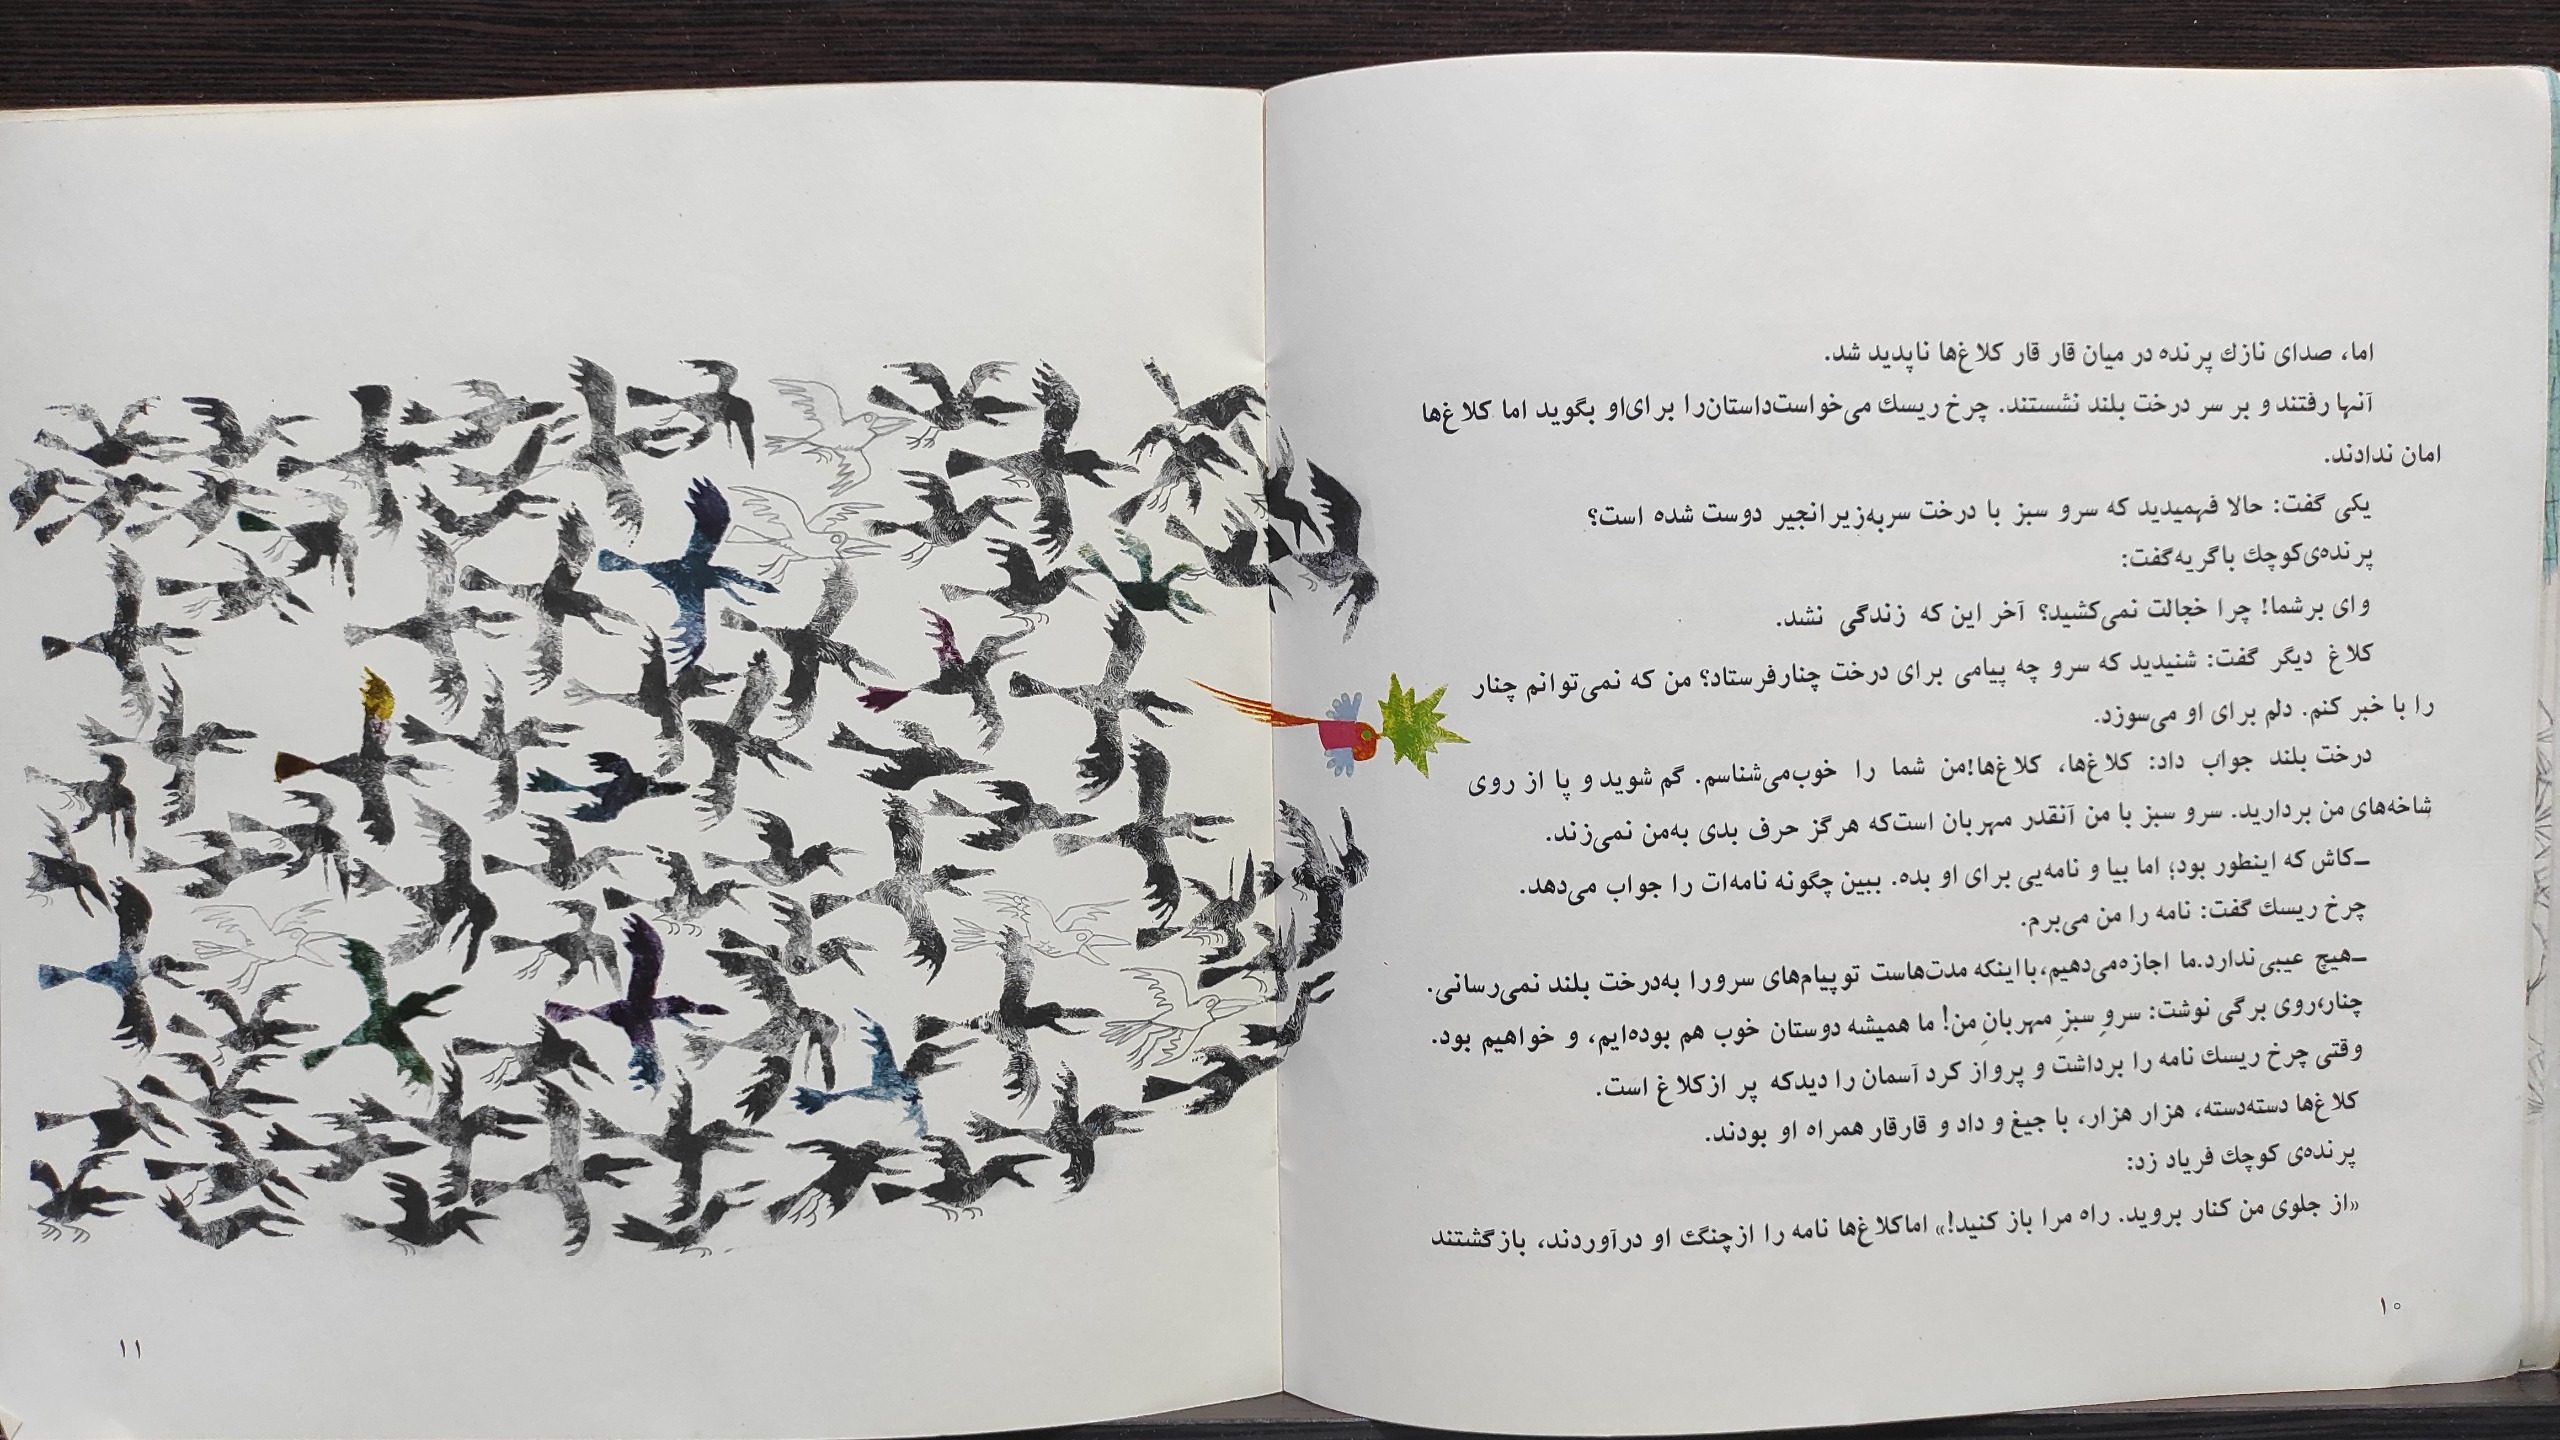 اما، صدای نازك پرنده در میان قار قار کلاغ‌ها ناپدید شد.
آنها رفتند و بر سر درخت بلند نشستند. چرخ ریسك می‌خواست‌داستان‌را برای‌او بگوید اما کلاغ‌ها
امان ندادند.
یکی گفت: حالا فهمیدید که سرو سبز با درخت سربه‌زیر انجیر دوست شده است؟
پرنده‌ی‌کوچك باگریه‌گفت:
وای برشما! چرا خجالت نمی‌کشید؟ آخر این که زندگی نشد.
کلاغ دیگر گفت: شنیدید که سرو چه پیامی برای درخت چنارفرستاد؟ من که نمی‌توانم چنار
را با خبر کنم. دلم برای او می‌سوزد.
درخت بلند جواب داد: کلاغ‌ها، کلاغ‌ها!من شما را خوب‌می‌شناسم. گم شوید و پا از روی
شاخه‌های من بردارید. سرو سبز با من آنقدر مهربان است‌که هرگز حرف بدی به‌من نمی‌زند.
ــکاش که اینطور بود؛ اما بیا و نامه‌یی برای او بده. ببین چگونه نامه‌ات را جواب می‌دهد.
چرخ ریسك گفت: نامه را من می‌برم.
ــهیچ عیبی‌ندارد.ما اجازه‌می‌دهیم،بااینکه مدت‌هاست توپیام‌های سرورا به‌درخت بلند نمی‌رسانی.
چنار،روی برگی نوشت: سروِ سبزِ مهربانِ من! ما همیشه دوستان خوب هم بوده‌ایم، و خواهیم بود.
وقتی چرخ ریسك نامه را برداشت و پرواز کرد آسمان را دیدکه پر ازکلاغ است.
کلاغ‌ها دسته‌دسته، هزار هزار، با جیغ و داد و قارقار همراه او بودند.
پرنده‌ی کوچك فریاد زد:
«از جلوی من کنار بروید. راه مرا باز کنید!» اماکلاغ‌ها نامه را ازچنگ او درآوردند، بازگشتند
۱۰
۱۱